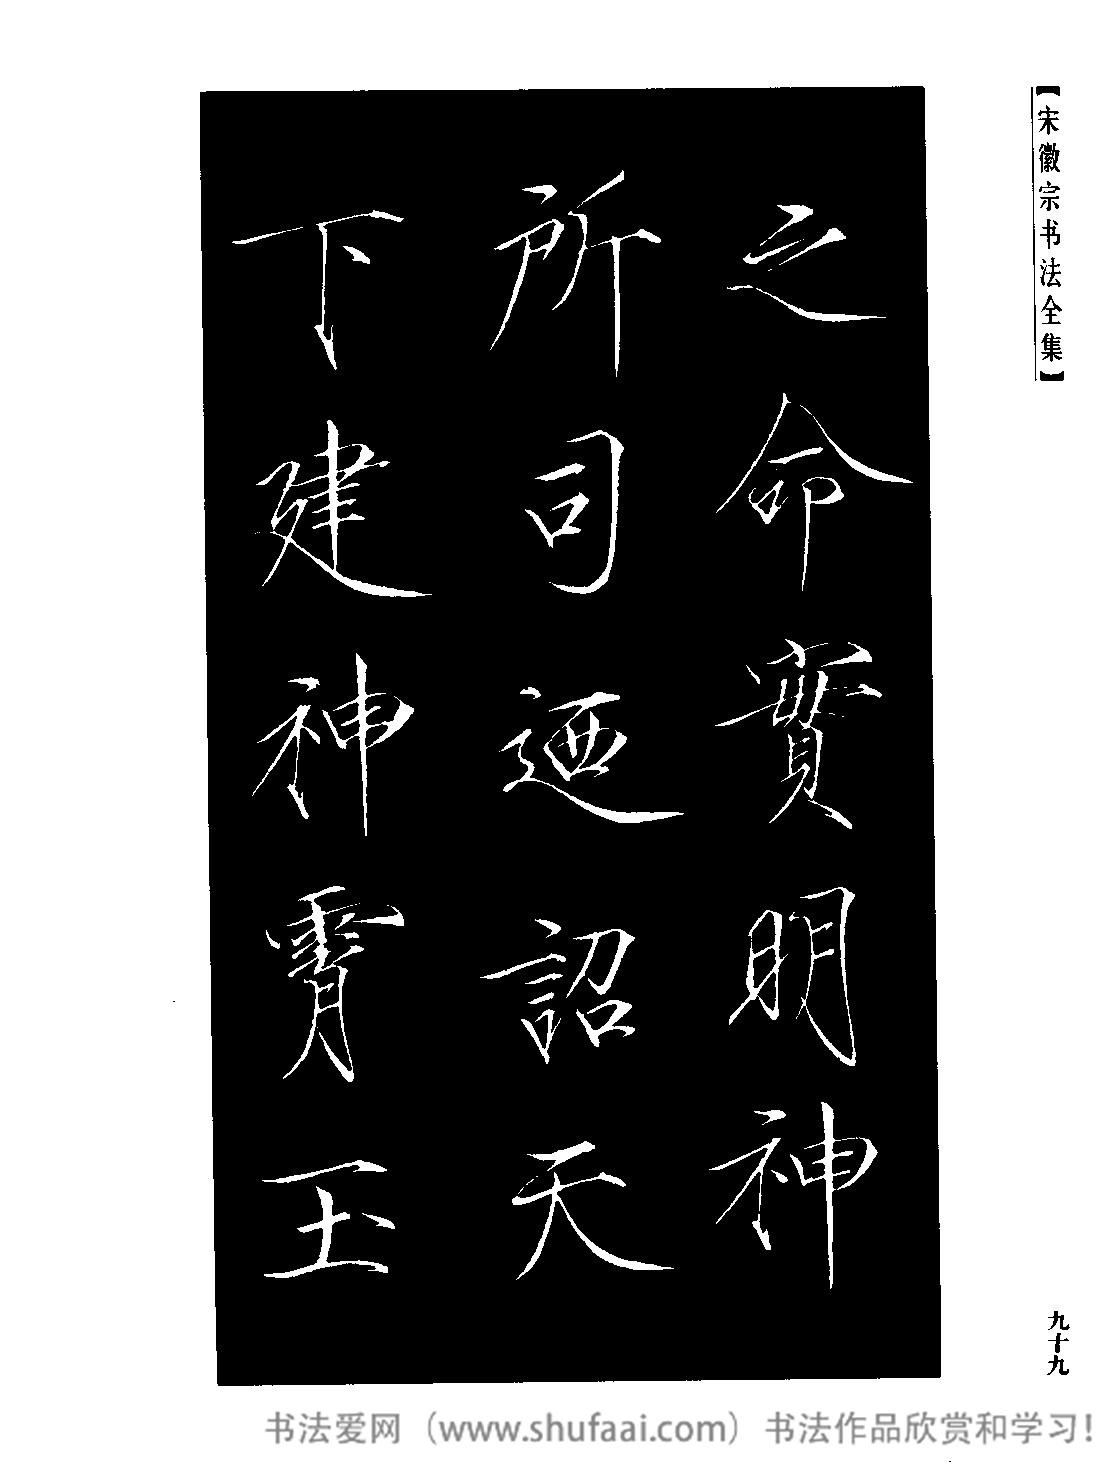 【宋徽宗书法全集】
之命實明神
所司迺詔天
下建神霄玉
九十九
书法爱网（www.shufaai.com）书法作品欣赏和学习！